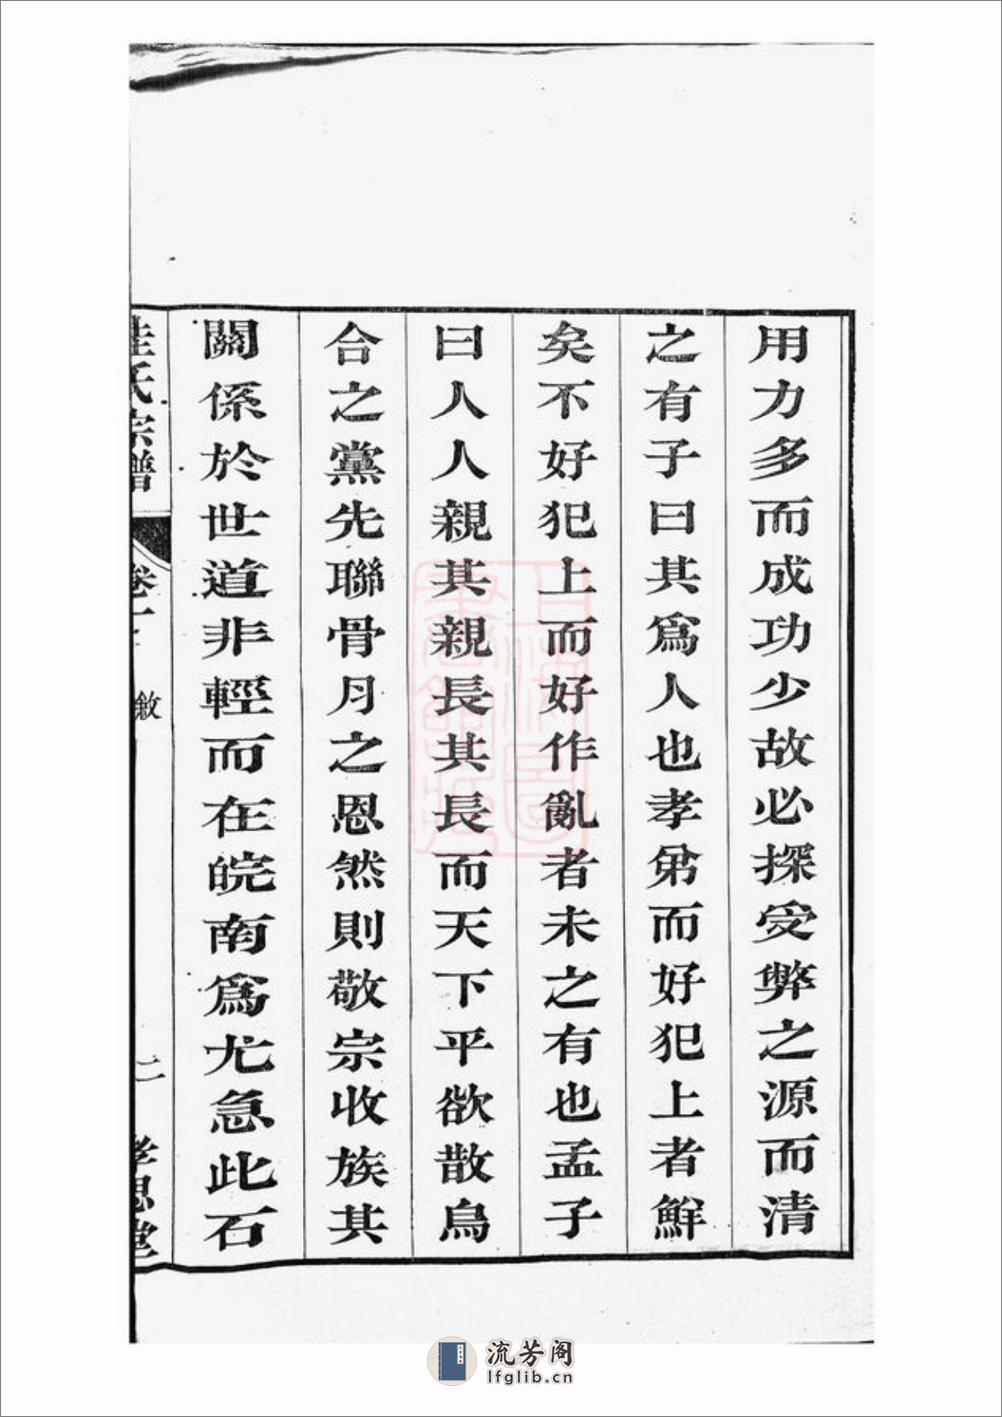 用力多而成功少故必探受弊之源而清
之有子曰其爲人也孝弟而好犯上者鮮
矣不好犯上而好作亂者未之有也孟子
曰人人親其親長其長而天下平欲散烏
合之黨先聯骨月之恩然則敬宗收族其
關係於世道非輕而在皖南爲尤急此石
桂氏宗譜 卷一 敘 二 孝思堂
上海圖書館藏
流芳阁
lfglib.cn